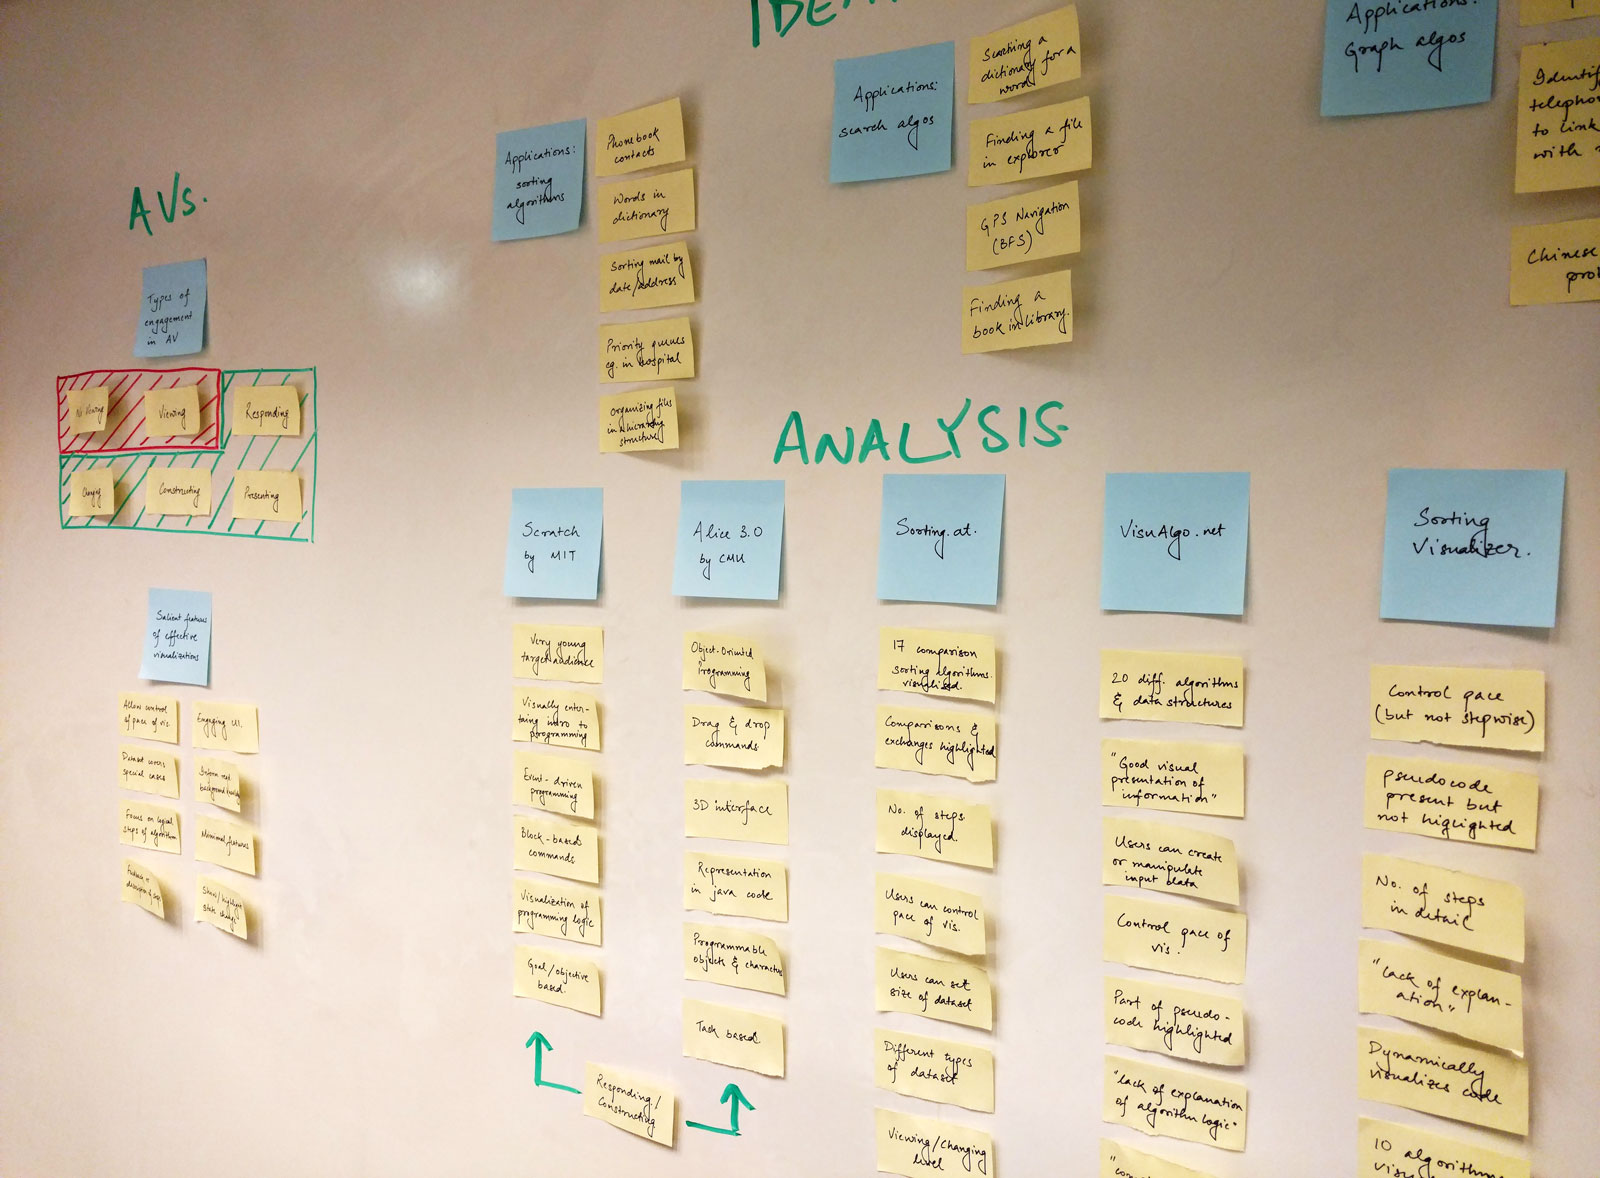 AVs.
Types of
engagement
in AV
No Viewing
Viewing
Responding
Changing
Constructing
Presenting
Salient features
of effective
visualizations
Allow control
of pace of vis.
Engaging UI.
Dataset covers
special cases
background
Focus on logical
steps of algorithm
Minimal features
Show/highlight
state change
Applications:
sorting
algorithms
Phonebook
contacts
Words in
dictionary
Sorting mail by
date/address
Priority queues
eg. in hospital
Organizing files
in
structure
Applications:
search algos
Searching a
dictionary for a
word
Finding a file
in explorer
GPS Navigation
(BFS)
Finding a
book in library.
Applications:
Graph algos
telepho
to link
with
Chinese
ANALYSIS.
Scratch
by MIT
Very young
target audience
Visually enter-
taing intro to
programming
Event-driven
programming
Block-based
commands
Visualization of
programming logic
Goal/objective
based.
Alice 3.0
by CMU
Object-Oriented
Programming
Drag & drop
commands
3D interface
Representation
in java code
Programmable
objects & characters
Task based.
Responding/
Constructing
Sorting.at.
17 comparison
sorting algorithms
visualized.
Comparisons &
exchanges highlighted
No. of steps
displayed.
Users can control
pace of vis.
Users can set
size of dataset
Different types
of dataset
Viewing/Changing
level
VisuAlgo.net
20 diff. algorithms
& data structures
"Good visual
presentation of
information"
Users can create
or manipulate
input data
Control pace of
vis.
Part of pseudo-
code highlighted
"lack of explanation
of algorithm logic"
Sorting
Visualizer.
Control pace
(but not stepwise)
pseudocode
present but
not higlighted
No. of steps
in detail
"lack of explan-
ation"
Dynamically
visualizes code
10 algorithms